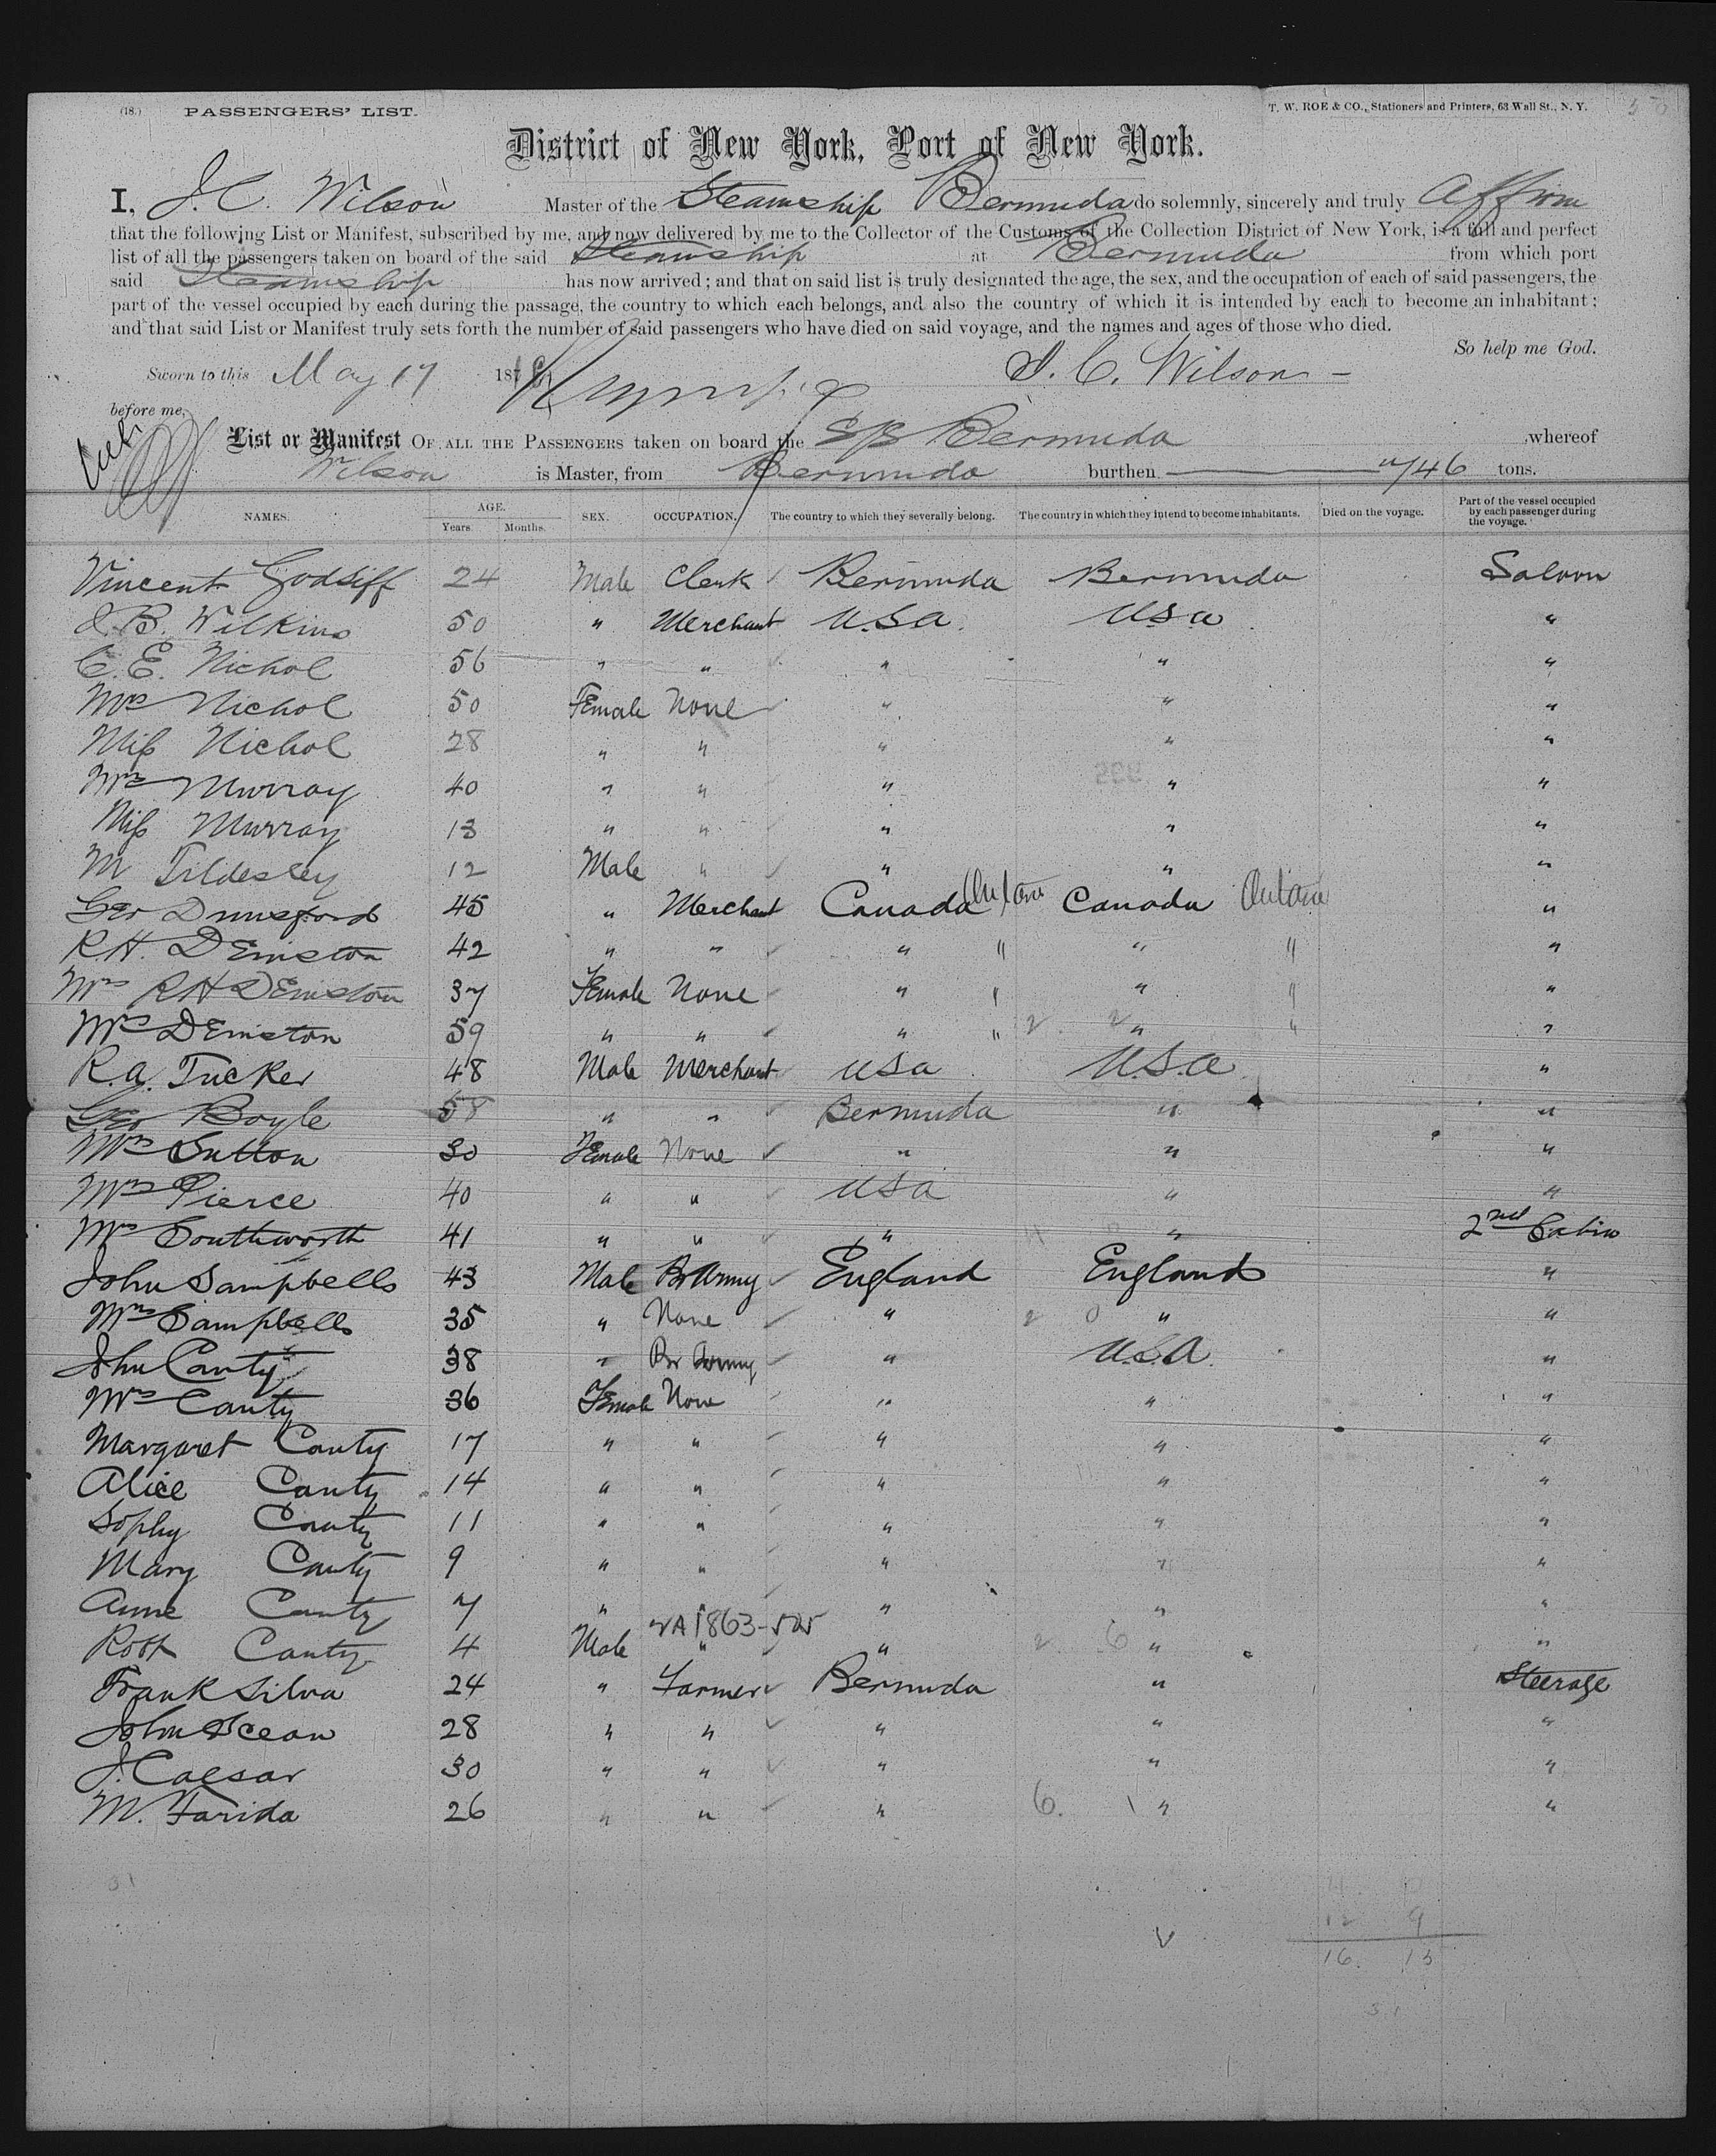 (18.) PASSENGERS' LIST. T. W. ROE & CO., Stationers and Printers, 63 Wall St., N. Y.
District of New York, Port of New York.
I, J. C. Wilson Master of the Steamship Bermuda do solemnly, sincerely and truly affirm
that the following List or Manifest, subscribed by me, and now delivered by me to the Collector of the Customs of the Collection District of New York, is a full and perfect
list of all the passengers taken on board of the said Steamship at Bermuda from which port
said Steamship has now arrived; and that on said list is truly designated the age, the sex, and the occupation of each of said passengers, the
part of the vessel occupied by each during the passage, the country to which each belongs, and also the country of which it is intended by each to become an inhabitant;
and that said List or Manifest truly sets forth the number of said passengers who have died on said voyage, and the names and ages of those who died.
So help me God.
Sworn to this May 17 187 J. C. Wilson
before me,
List or Manifest OF ALL THE PASSENGERS taken on board the S/S Bermuda whereof
Wilson is Master, from Bermuda burthen 746 tons.
NAMES. AGE. Years. Months. SEX. OCCUPATION. The country to which they severally belong. The country in which they intend to become inhabitants. Died on the voyage. Part of the vessel occupied by each passenger during the voyage.
Vincent Godsiff 24 Male Clerk Bermuda Bermuda Saloon
J. B. Wilkins 50 " Merchant U.S.A. U.S.A "
C. E. Nichol 56 " " " " "
Mrs Nichol 50 Female None " " "
Miss Nichol 28 " " " " "
Mrs Murray 40 " " " " "
Miss Murray 13 " " " " "
M Tildesley 12 Male " " " "
Geo Dunsford 45 " Merchant Canada Ontario Canada Ontario "
R.H. DEmiston 42 " " " " " " "
Mrs RH DEmiston 37 Female None " " " " "
Mrs DEmiston 59 " " " " " " "
R.A. Tucker 48 Male Merchant USA U.S.A "
Geo Boyle 58 " " Bermuda " "
Mrs Sutton 30 Female None " " "
Mrs Pierce 40 " " USA " "
Mrs Southworth 41 " " " " 2nd Cabin
John Sampbells 43 Male Br Army England England "
Mrs Sampbells 35 " None " 2 0 " "
John Canty 38 " Br Army " U.S.A. "
Mrs Canty 36 Female None " " "
Margaret Canty 17 " " " " "
Alice Canty 14 " " " " "
Sophy Canty 11 " " " " "
Mary Canty 9 " " " " "
Anne Canty 7 " " " " "
Robt Canty 4 Male " " 2 6 " "
Frank Silva 24 " Farmer Bermuda " Steerage
John Scean 28 " " " " "
J. Caesar 30 " " " " "
M. Farida 26 " " " 6. 1 " "
12 9
16. 15
31